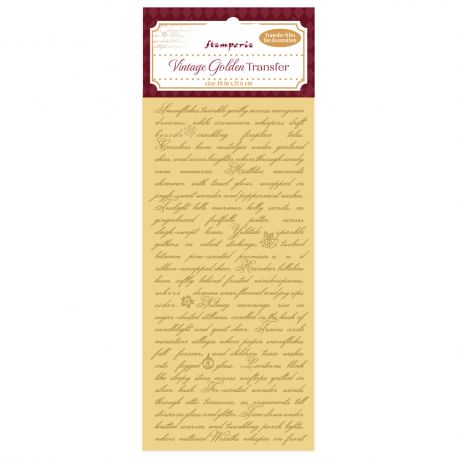 Stamperia
Transfer film
for decoration
Vintage Golden Transfer
size 10.16 x 21.6 cm
Snowflakes twinkle gently across evergreen
dreams, while cinnamon whispers drift
beside crackling fireplace tales.
Carolers hum nostalgia under garland
skies, and cocoa laughter echoes through candy
cane memories. Mistletoe moments
shimmer with tinsel glow, wrapped in
jingle-sweet wonder and peppermint wishes.
Twilight bells murmur holly secrets as
gingerbread footfalls patter across
sleigh-swept lanes. Yuletide sparkle
gathers in velvet stockings, tucked
between pine-scented promises and
ribbon-wrapped cheer. Reindeer lullabies
hum softly behind frosted windowpanes,
where dreams wear flannel and joy sips
cider. Nutmeg mornings rise in
sugar-dusted stillness, cradled in the hush of
candlelight and quiet cheer. Trains circle
miniature villages where paper snowflakes
fall forever, and children trace wishes
into fogged glass. Lanterns blink
like sleepy stars across rooftops quilted in
silver hush. Fir-scented wonder winds
through attic treasures, as ornaments tell
stories in glass and glitter. Time slows under
knitted scarves and twinkling porch lights,
where mittened Wreaths whisper on front